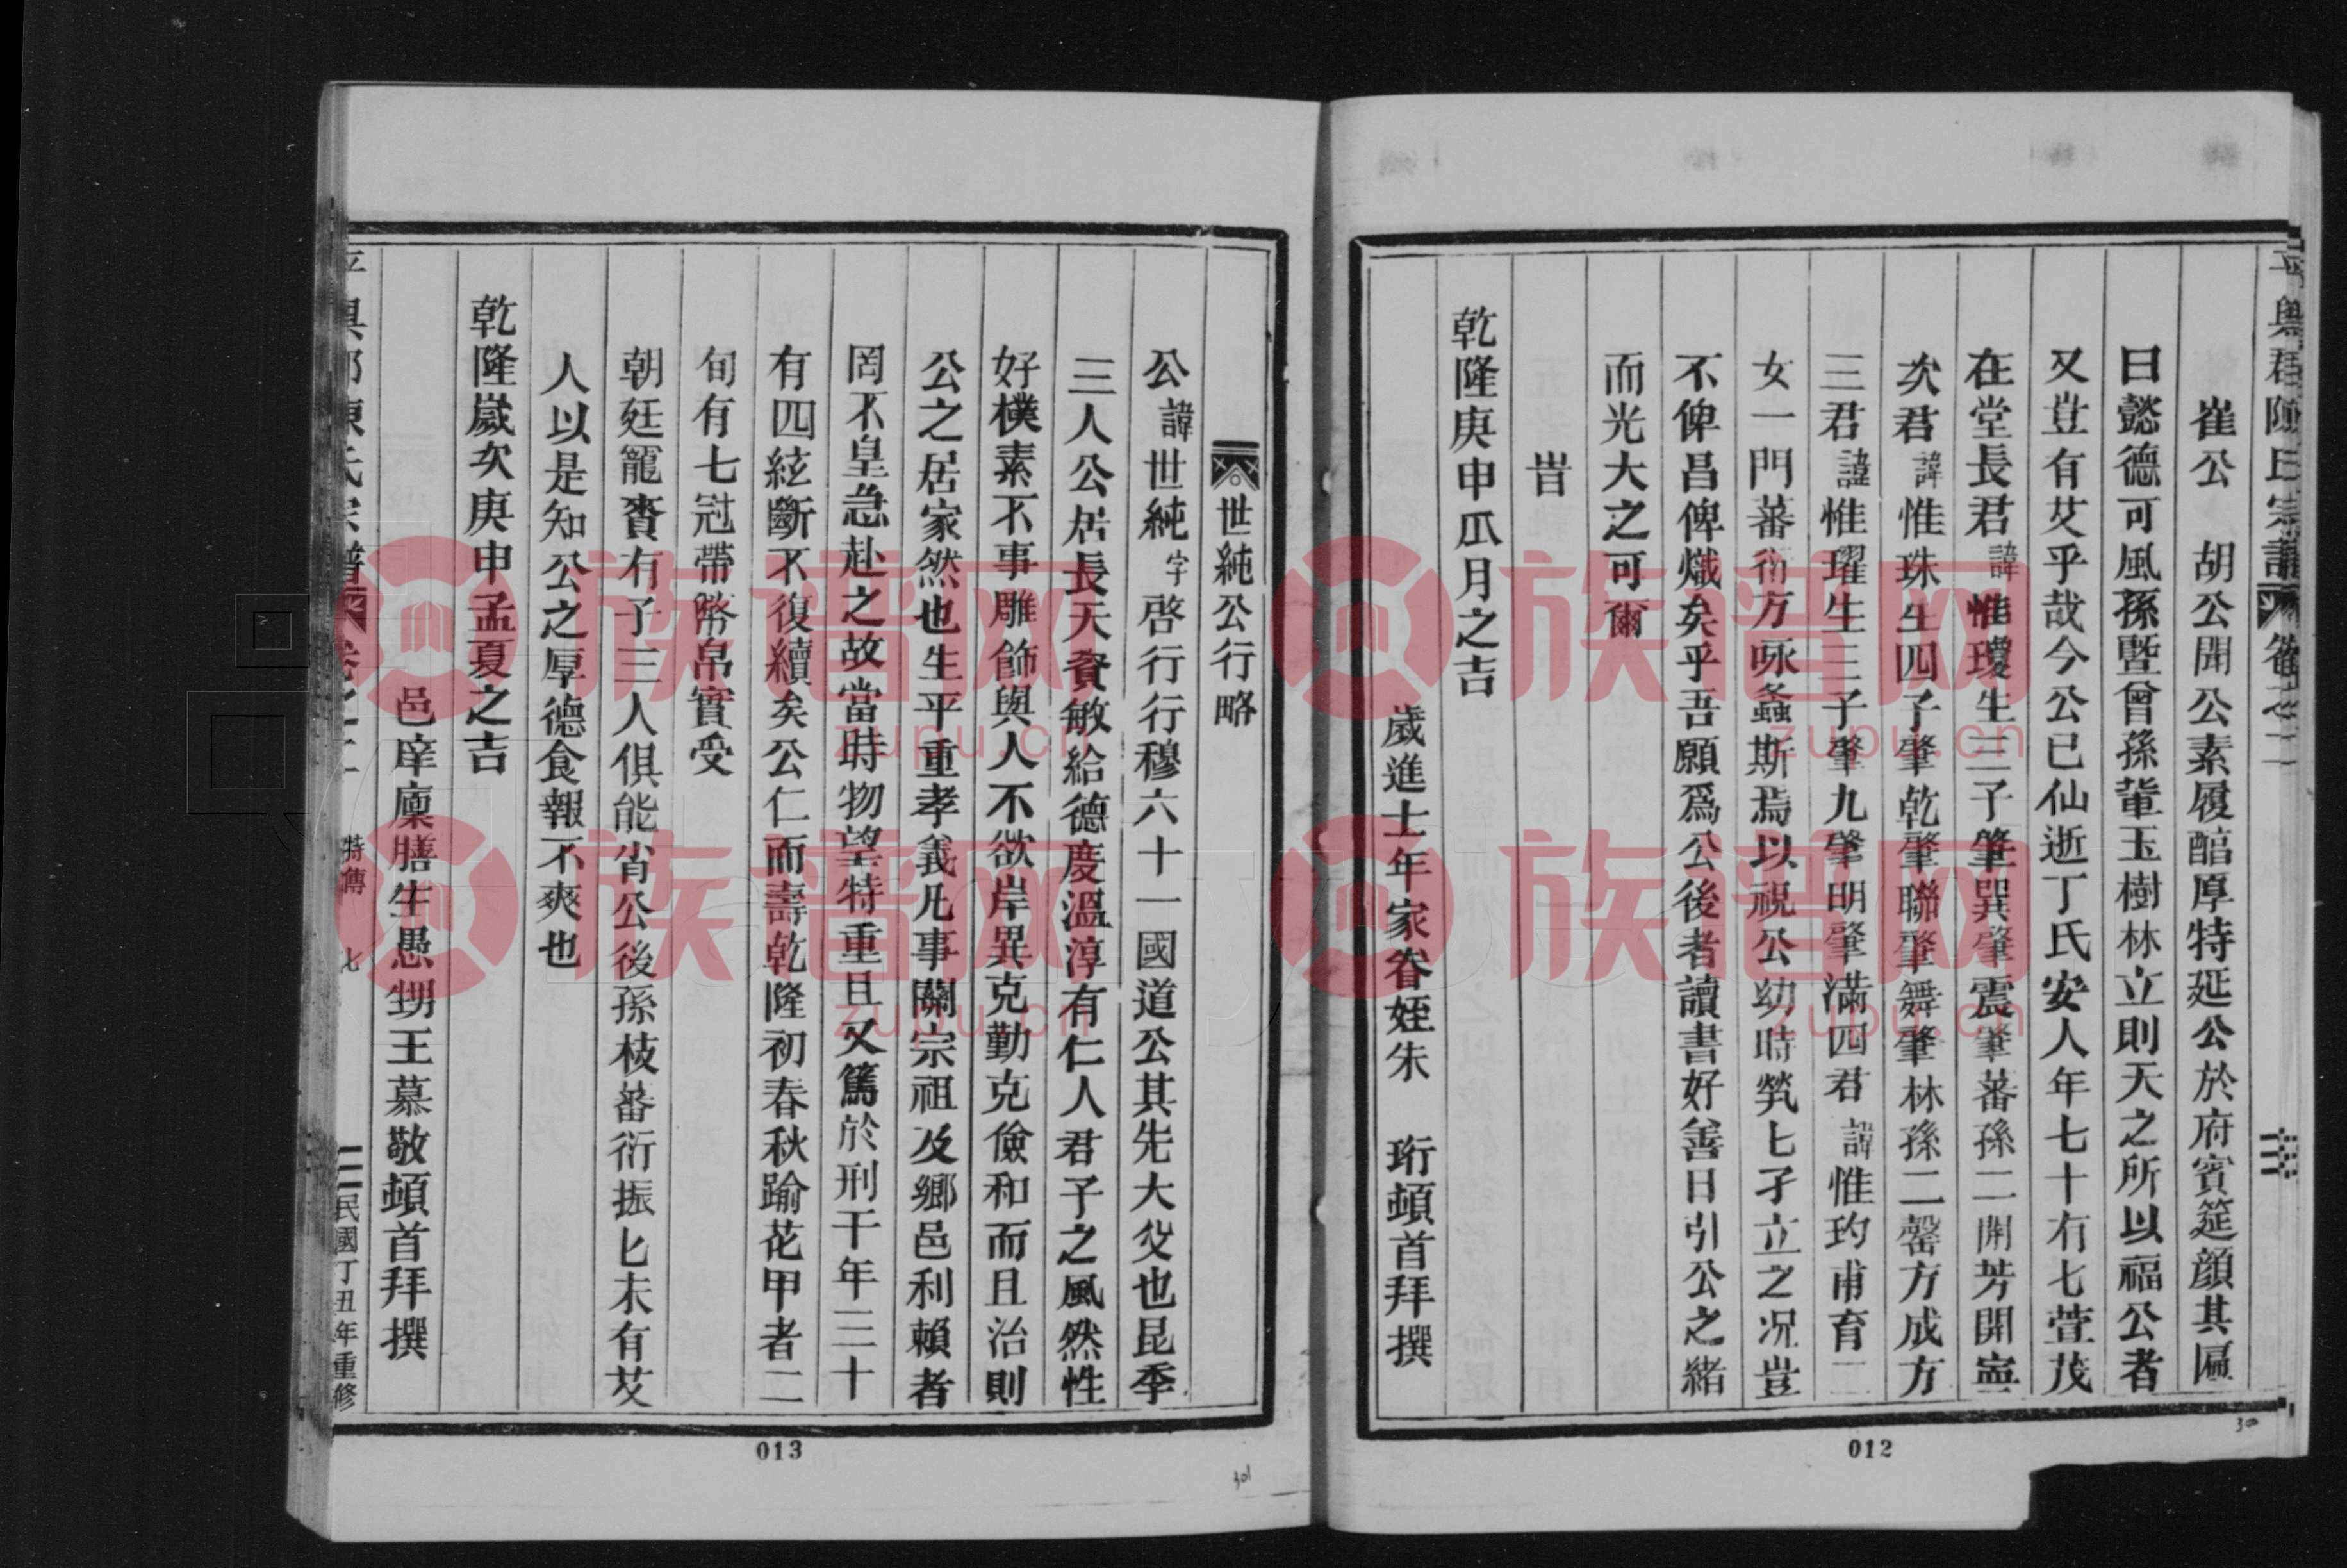 崔公 胡公聞公素履醕厚特延公於府賓筵顏其匾
曰懿德可風孫曁曾孫輩玉樹林立則天之所以福公者
又豈有艾乎哉今公已仙逝丁氏安人年七十有七萱茂
在堂長君諱惟瓊生三子肇巽肇震肇蕃孫二開芳開寧
次君諱惟珠生四子肇乾肇聯肇舞肇林孫二罄方成方
三君諱惟瑆生三子肇九肇明肇滿四君諱惟玓甫育二
女一門蕃衍方咏螽斯焉以視公幼時煢匕孑立之况豈
不俾昌俾熾矣乎吾願爲公後者讀書好善日引公之緒
而光大之可爾
旹
乾隆庚申瓜月之吉
歲進士年家眷姪朱 珩頓首拜撰
012
世純公行略
公諱世純字啓行行穆六十一國道公其先大父也昆季
三人公居長天資敏給德慶溫淳有仁人君子之風然性
好樸素不事雕飾與人不欲岸異克勤克儉和而且治則
公之居家然也生平重孝義凡事關宗祖及鄉邑利賴者
罔不皇急赴之故當時物望特重且又篤於刑干年三十
有四絃斷不復續矣公仁而壽乾隆初春秋踰花甲者二
旬有七冠帶幣帛實受
朝廷寵賚有子三人俱能肖公後孫枝蕃衍振匕未有艾
人以是知公之厚德食報不爽也
乾隆歲次庚申孟夏之吉
邑庠廩膳生愚甥王慕敬頓首拜撰
特傳 七
民國丁丑年重修
013
族谱网
zupu.cn
族谱网
zupu.cn
族谱网
zupu.cn
族谱网
zupu.cn